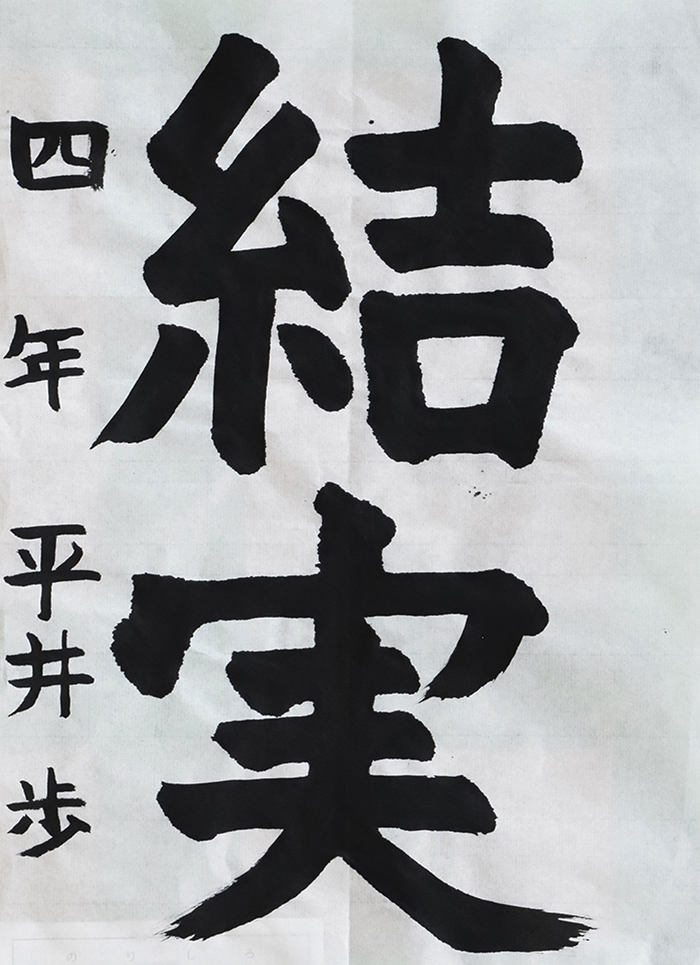 結実
四年 平井歩
のりしろ